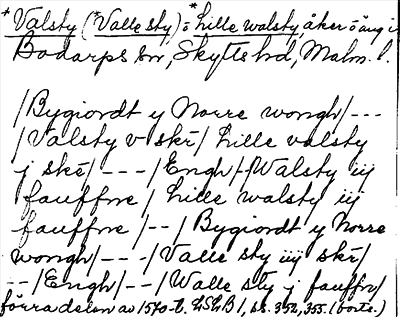 *Valsty (*Valle sty,) = *Lille walsty, åker o äng i
Bodarps sn, Skytts hd, Malm. l.
/Bygiordt y Norre wongh/---
/Valsty v skr/ Lille valsty
j ske/---/Engh/-/Walsty iij
fauffne/ Lille walsty iij
fauffne/--/Bygiordt y Norre
wongh/---/Valle sty iiij skr/
--/Engh/--/Walle sty j fauffn/
förra delen av 1570-t. LSLB 1, ss. 352, 355.